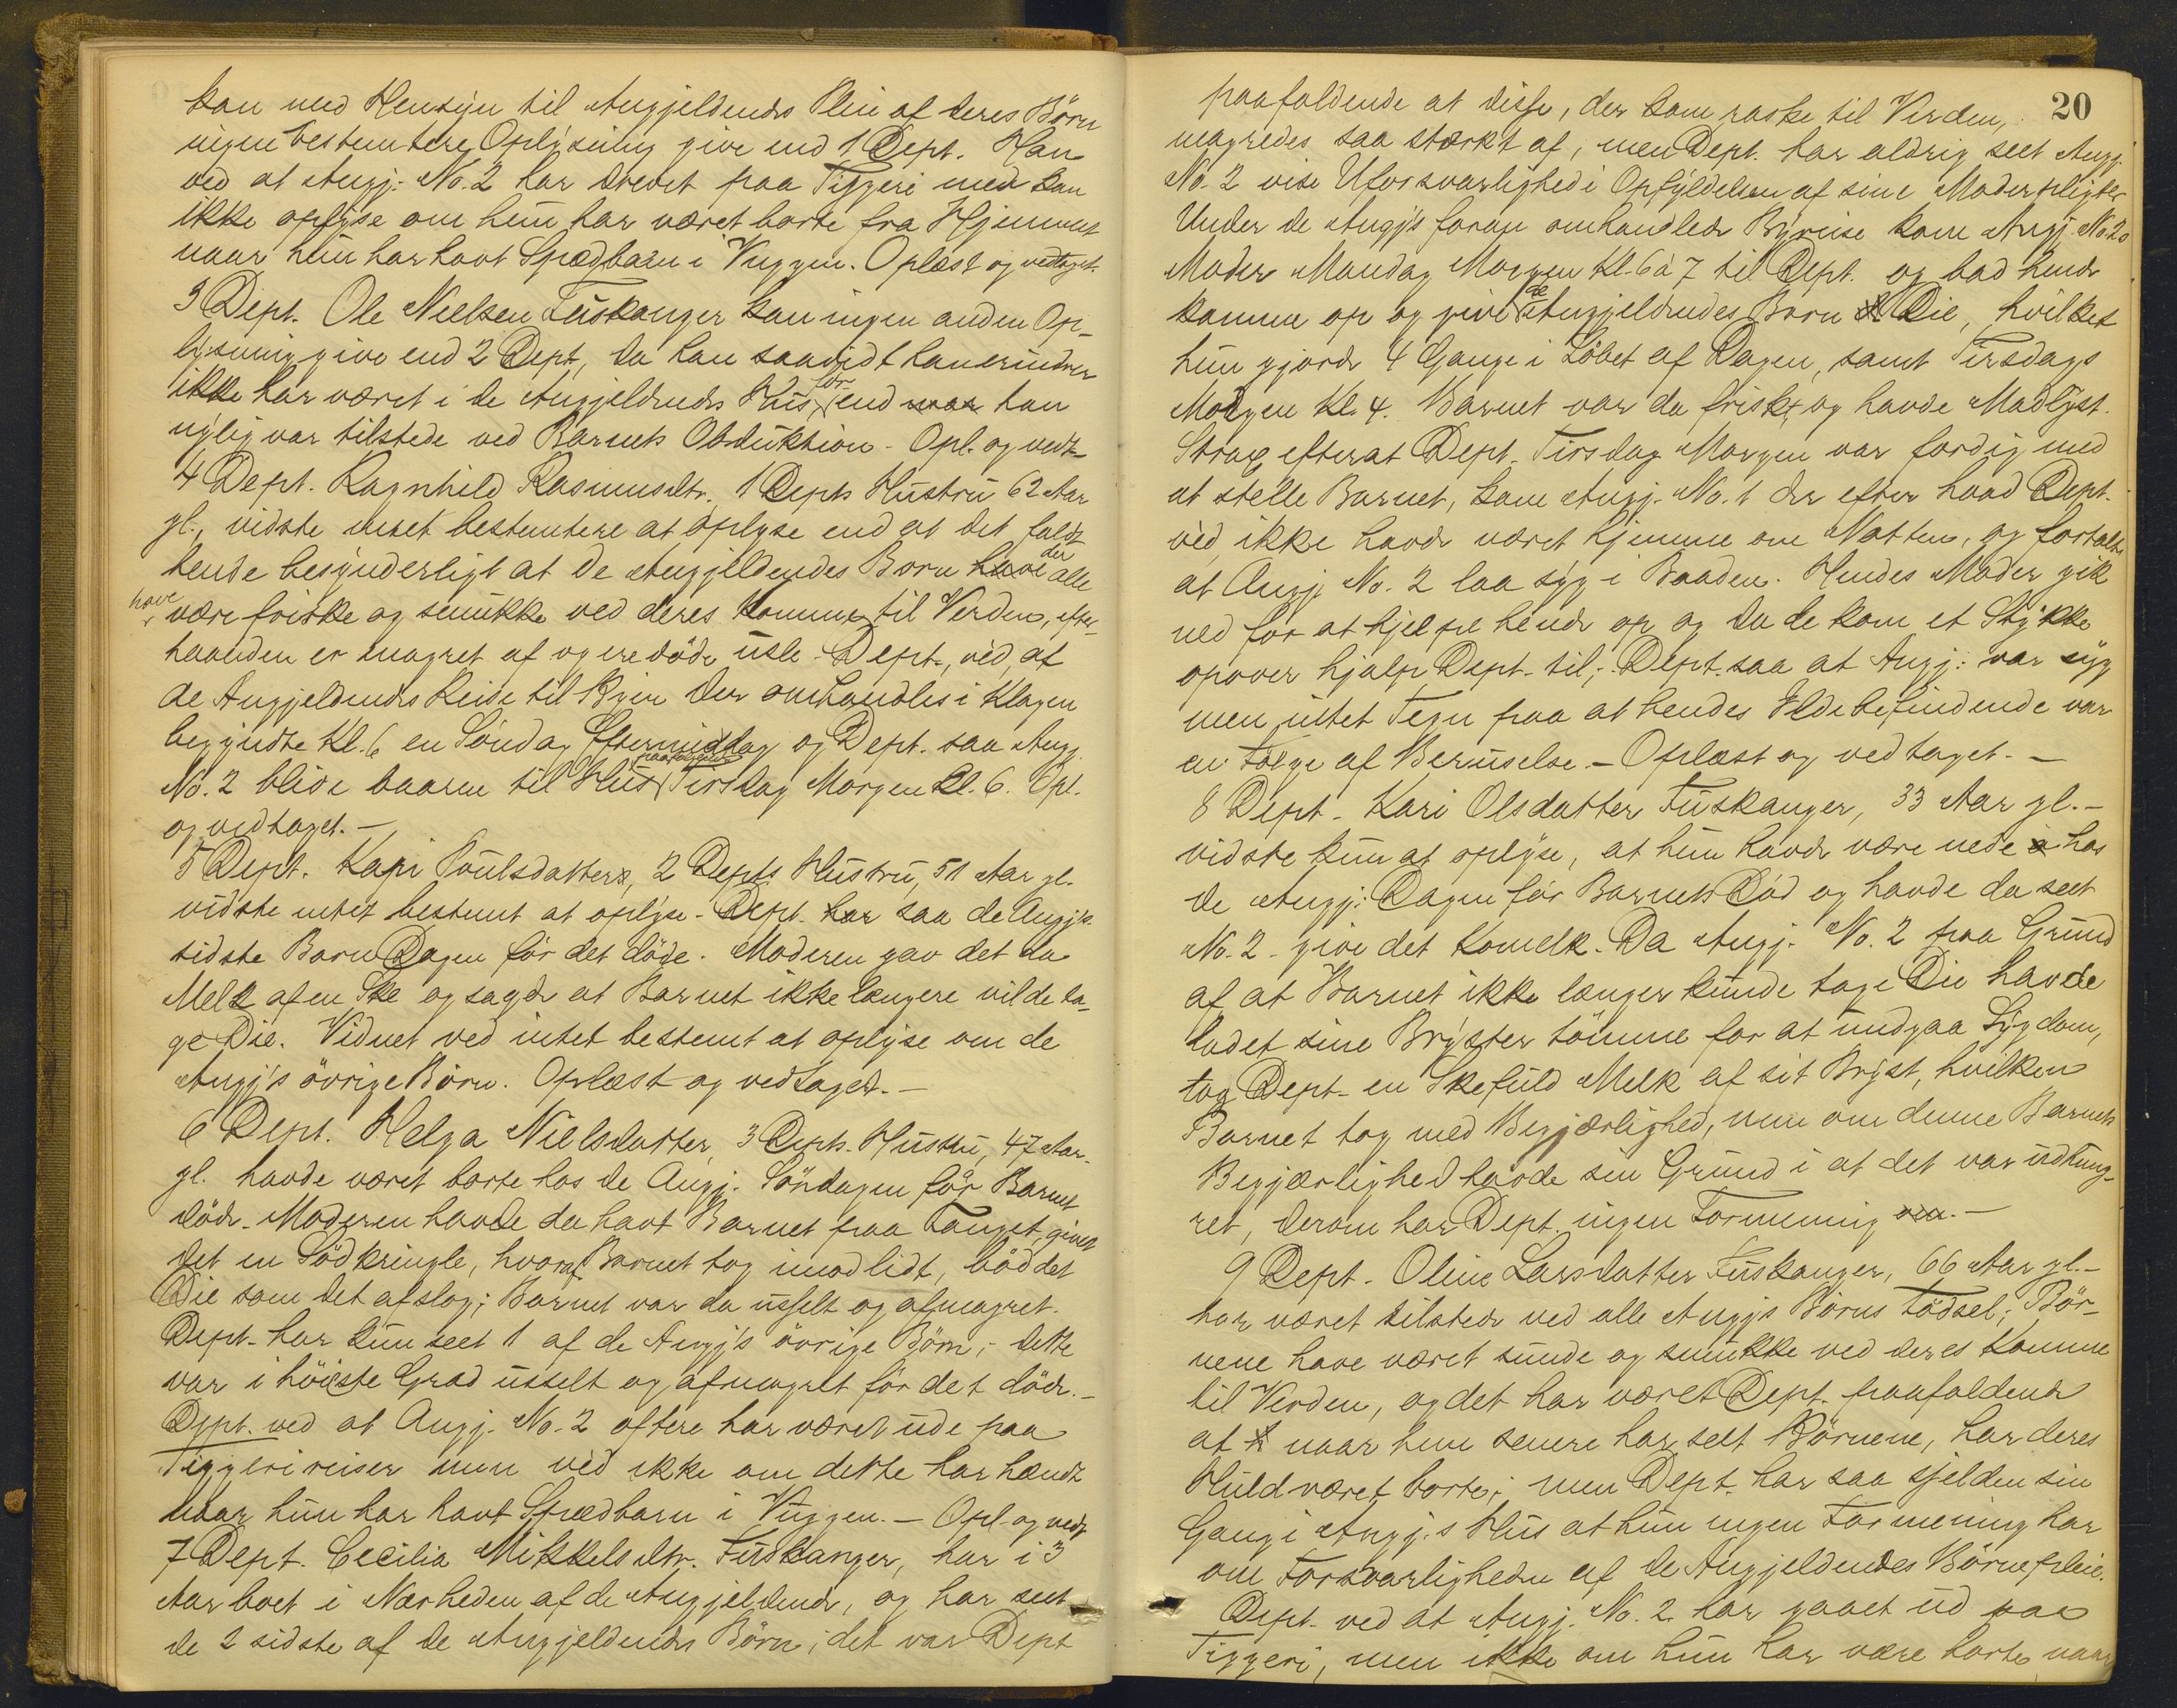 kan med Hensyn til Angjeldendes Pleie af deres Börn
ingen bestemtere Oplysning give end 1 Dept. Han
ved at Angj: No. 2 har drevet paa Tiggeri men kan
ikke oplyse om hun har været borte fra Hjemmet
naar hun har havt Spædbarn i Vuggen. Oplæst og vedtaget.
3 Dept. Ole Nielsen Fuskanger kan ingen anden Op-
lysning give end 2 Dept, da han saavidt han erindrer
ikke har været i de Angjeldendes Hus, för end naar han
nylig var tilstede ved Barnets Obduktion - Opl. og vedt.
4 Dept. Ragnhild Rasmusdtr. 1 Depts Hustru 62 Aar
gl., vidste intet bestemtere at oplyse end at det faldt
hende besynderligt at de Angjeldendes Börn have der alle
have være friske og smukke ved deres Komme til Verden, efter-
haanden er magret af og ere döde usle. Dept., ved, at
de Angjeldendes Reise til Byen der omhandles i Klagen
begyndte Kl. 6 en Söndag Eftermiddag og Dept. saa Angj.
No. 2 blive baaren til Hus paafölgende Tirsdag Morgen Kl. 6. Opl.
og vedtaget. -
5 Dept. Kari Poulsdatter, 2 Depts Hustru, 51 Aar gl.
vidste intet bestemt at oplyse - Dept. har saa de Angj's
sidste Barn Dagen för det döde. Moderen gav det da
Melk af en Ske og sagde at Barnet ikke længere vilde ta-
ge Die. Vidnet ved intet bestemt at oplyse om de
Angj's övrige Börn. Oplæst og vedtaget. -
6 Dept. Helga Nielsdatter, 3 Depts. Hustru, 47 Aar
gl. havde været borte hos de Angj. Söndagen för Barnet
döde. Moderen havde da havt Barnet paa Fanget, givet
det en Södkringle, hvoraf Barnet tog imod lidt, böd det
Die som det afslog; Barnet var da usselt og afmagret.
Dept. har kun seet 1 af de Angj's övrige Börn, - dette
var i höieste Grad usselt og afmagret för det döde. -
Dept. ved at Angj. No. 2 oftere har været ude paa
Tiggerireiser men ved ikke om dette har hændt
naar hun har havt Spædbarn i Vuggen. - Opl. og vedt.
7 Dept. Cecilia Mikkelsdtr. Fuskanger, har i 3
Aar boet i Nærheden af de Angjeldende, og har seet
de 2 sidste af de Angjeldendes Börn; det var Dept
20
paafaldende at disse, der kom raske til Verden,
magredes saa stærkt af, men Dept. har aldrig seet Angj.
No. 2 vise Uforsvarlighed i Opfyldelsen af sine Moderpligter
Under de Angj's foran omhandlede Byreise kom Angj. No 2s
Moder Mandag Morgen Kl. 6 à 7 til Dept. og bad hende
komme op og give de Angjeldendes Barn Die, hvilket
hun gjorde 4 Gange i Löbet af Dagen, samt Tirsdags
Morgen Kl. 4. Barnet var da friskt og havde Madlyst.
Strax efterat Dept. Tirsdag Morgen var færdig med
at stelle Barnet, kom Angj. No. 1 der efter hvad Dept.
ved, ikke havde været hjemme om Natten, og fortalte
at Angj. No. 2 laa syg i Baaden. Hendes Moder gik
ned for at hjelpe hende op og da de kom et Stykke
opover hjalp Dept. til; Dept. saa at Angj: var syg
men intet Tegn paa at hendes Ildebefindende var
en Fölge af Beruselse. - Oplæst og vedtaget. -
8 Dept. Kari Olsdatter Fuskanger, 33 Aar gl. -
vidste kun at oplyse, at hun havde være nede hos
de Angj: Dagen för Barnets Död og havde da seet
No. 2 - give det Komelk. Da Angj. No. 2 paa Grund
af at Barnet ikke længer kunde tage Die havde
ladet sine Bryster tömme for at undgaa Sygdom,
tog Dept. en Skefuld Melk af sit Bryst, hvilken
Barnet tog med Begjærlighed, men om denne Barnets
Begjærlighed havde sin Grund i at det var udhung-
ret, derom har Dept. ingen Formening om. -
9 Dept. Oline Larsdatter Fuskanger, 66 Aar gl. -
har været tilstede ved alle Angj's Börns Födsel; Bör-
nene have været sunde og smukke ved deres Komme
til Verden, og det har været Dept. paafaldende
at naar hun senere har seet Börnene, har deres
Huld været borte; men Dept. har saa sjelden sin
Gang i Angj.s Hus at hun ingen Formening har
om Forsvarligheden af de Angjeldendes Börnepleie.
Dept. ved at Angj. No. 2 har gaaet ud paa
Tiggeri, men ikke om hun har være borte naar